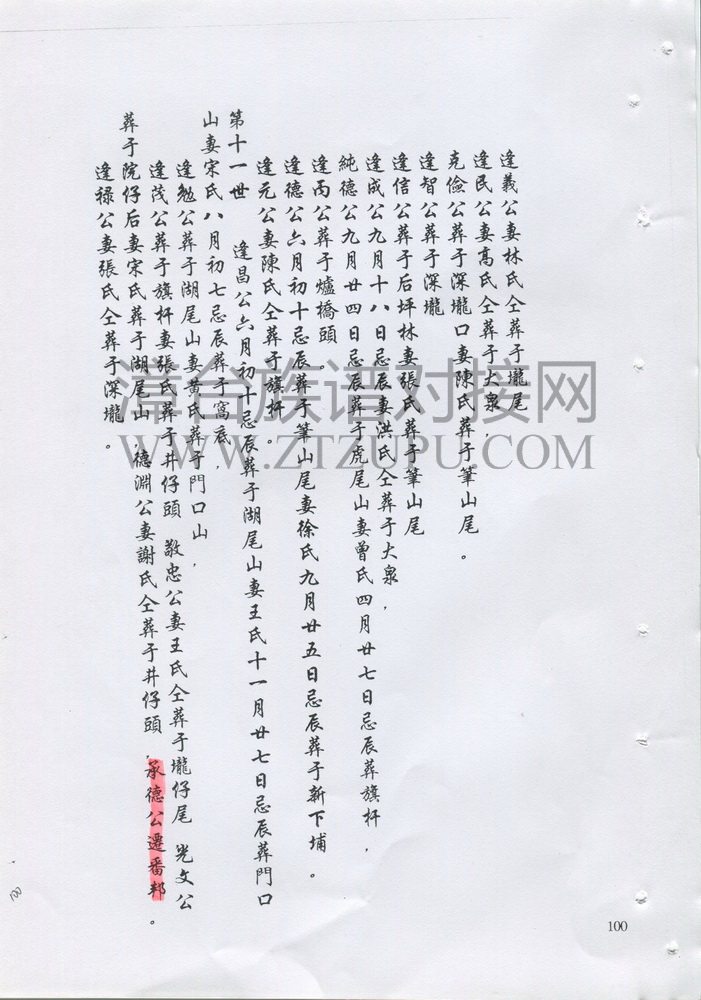 逢義公妻林氏仝葬于壠尾
逢民公妻高氏仝葬于大泉，
克儉公葬于深壠口妻陳氏葬于筆山尾。
逢智公葬于深壠
逢信公葬于后坪林妻張氏葬于筆山尾
逢成公九月十八日忌辰妻洪氏仝葬于大泉，
純德公九月廿四日忌辰葬于虎尾山妻曾氏四月廿七日忌辰葬旗杆，
逢丙公葬于爐橋頭。
逢德公六月初十忌辰葬于筆山尾妻徐氏九月廿五日忌辰葬于新下埔。
逢元公妻陳氏仝葬于旗杆。
第十一世 逢昌公六月初十忌辰葬于湖尾山妻王氏十一月廿七日忌辰葬門口
山妻宋氏八月初七忌辰葬于窩底，
逢勉公葬于湖尾山妻黃氏葬于門口山，
逢茂公葬于旗杆妻張氏葬于井仔頭 敬忠公妻王氏仝葬于壠仔尾 光文公
葬于院仔后妻宋氏葬于湖尾山，德淵公妻謝氏仝葬于井仔頭，承德公遷番邦。
逢祿公妻張氏仝葬于深壠。
漳台族谱对接网
WWW.ZTZUPU.COM
100
100